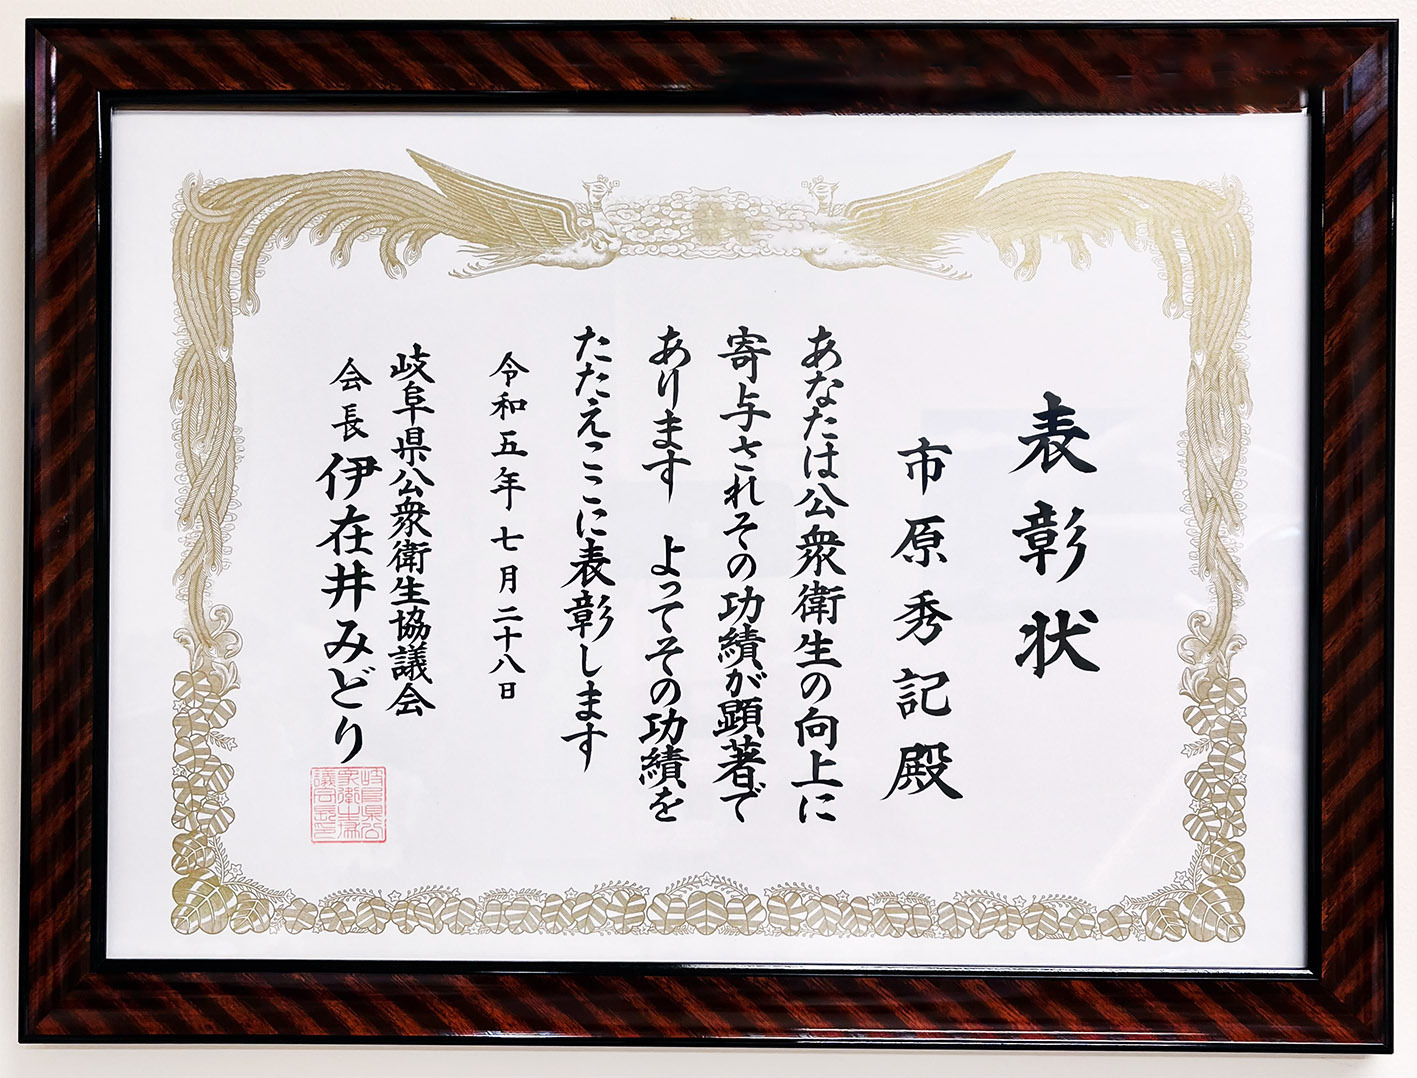 表彰状
市原秀記殿
あなたは公衆衛生の向上に
寄与されその功績が顕著で
あります　よってその功績を
たたえここに表彰します
令和五年七月二十八日
岐阜県公衆衛生協議会
会長 伊在井みどり
岐阜県公
衆衛生協
議会長印